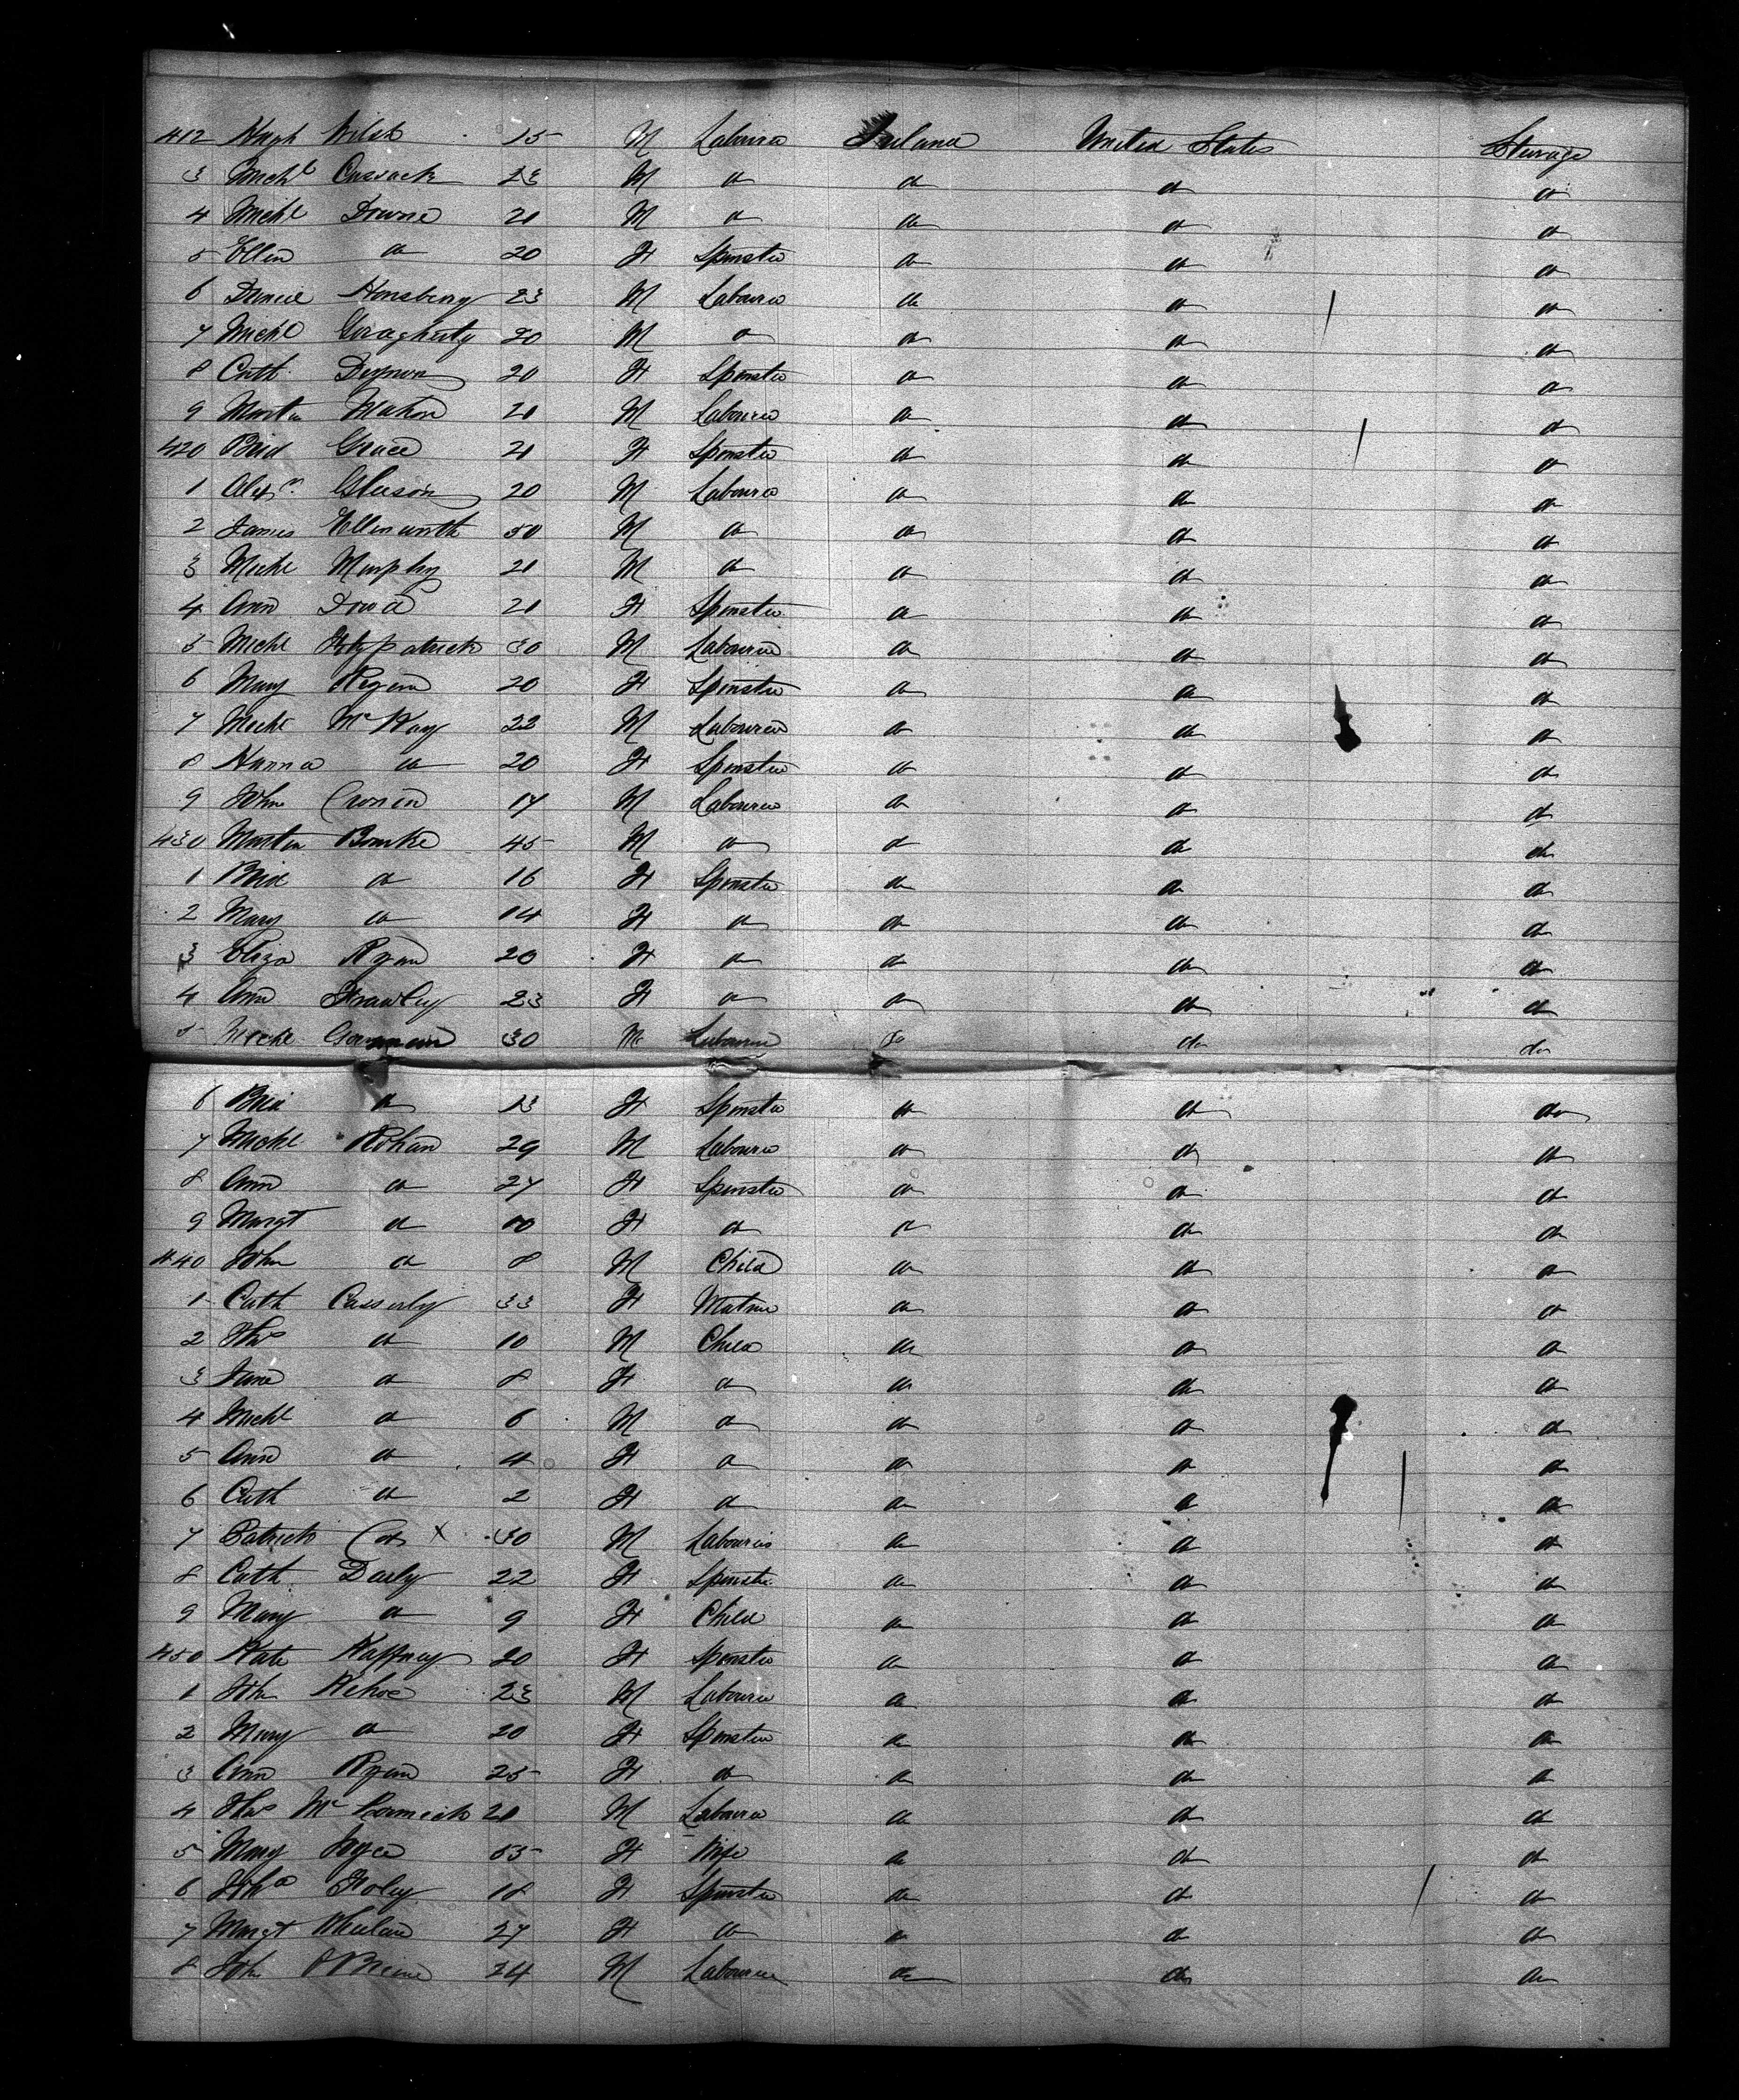 412 Hugh Welsh 15 M Labourer Ireland United States Steerage
3 Michl Cusack 23 M do do do do
4 Michl Downe 20 M do do do do
5 Ellen do 20 F Spinster do do do
6 Daniel Honsberry 23 M Labourer do do do
7 Michl Geraghty 20 M do do do do
8 Cath 20 F Spinster do do do
9 Martin Mahon 20 M Labourer do do do
420 Brid Grace 21 F Spinster do do do
1 Alexr Gleeson 20 M Labourer do do do
2 James Ellinworth 50 M do do do do
3 Michl Murphy 20 M do do do do
4 Ann Dowd 20 F Spinster do do do
5 Michl Fitzpatrick 30 M Labourer do do do
6 Mary Regan 20 F Spinster do do do
7 Michl McKay 22 M Labourer do do do
8 Hanna do 20 F Spinster do do do
9 John Cronin 17 M Labourer do do do
430 Martin Bourke 45 M do do do do
1 Brid do 16 F Spinster do do do
2 Mary do 14 F do do do do
3 Eliza Ryan 20 F do do do do
4 Ann Frawley 23 F do do do do
5 Michl 30 M Labourer do do do
6 Brid do 13 F Spinster do do do
7 Michl Rohan 29 M Labourer do do do
8 Ann do 27 F Spinster do do do
9 Margt do 10 F do do do do
440 John do 8 M Child do do do
1 Cath Casserly 33 F Matron do do do
2 Thos do 10 M Child do do do
3 Jane do 8 F do do do do
4 Michl do 6 M do do do do
5 Ann do 4 F do do do do
6 Cath do 2 F do do do do
7 Patrick Cox X 30 M Labourer do do do
8 Cath Darly 22 F Spinster do do do
9 Mary do 9 F Child do do do
450 Kate Kaffney 20 F Spinster do do do
1 John Kehoe 23 M Labourer do do do
2 Mary do 20 F Spinster do do do
3 Ann Ryan 25 F do do do do
4 Thos McCormick 20 M Labourer do do do
5 Mary Joyce 55 F Wife do do do
6 Joha Foley 18 F Spinster do do do
7 Margt Whelan 27 F do do do do
8 John OBrien 24 M Labourer do do do